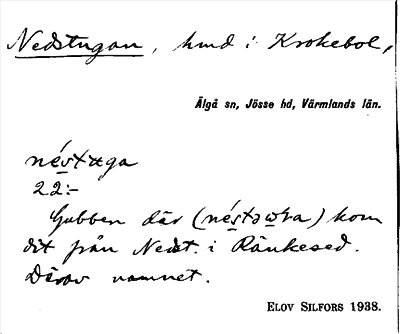 Nedstugan, hmd i Krokebol,
Älgå sn, Jösse hd, Värmlands län.
néstuga
22:-
Gubben där (néstəωra) kom
dit från Nedst. i Ränkesed.
Därav namnet.
ELOV SILFORS 1938.